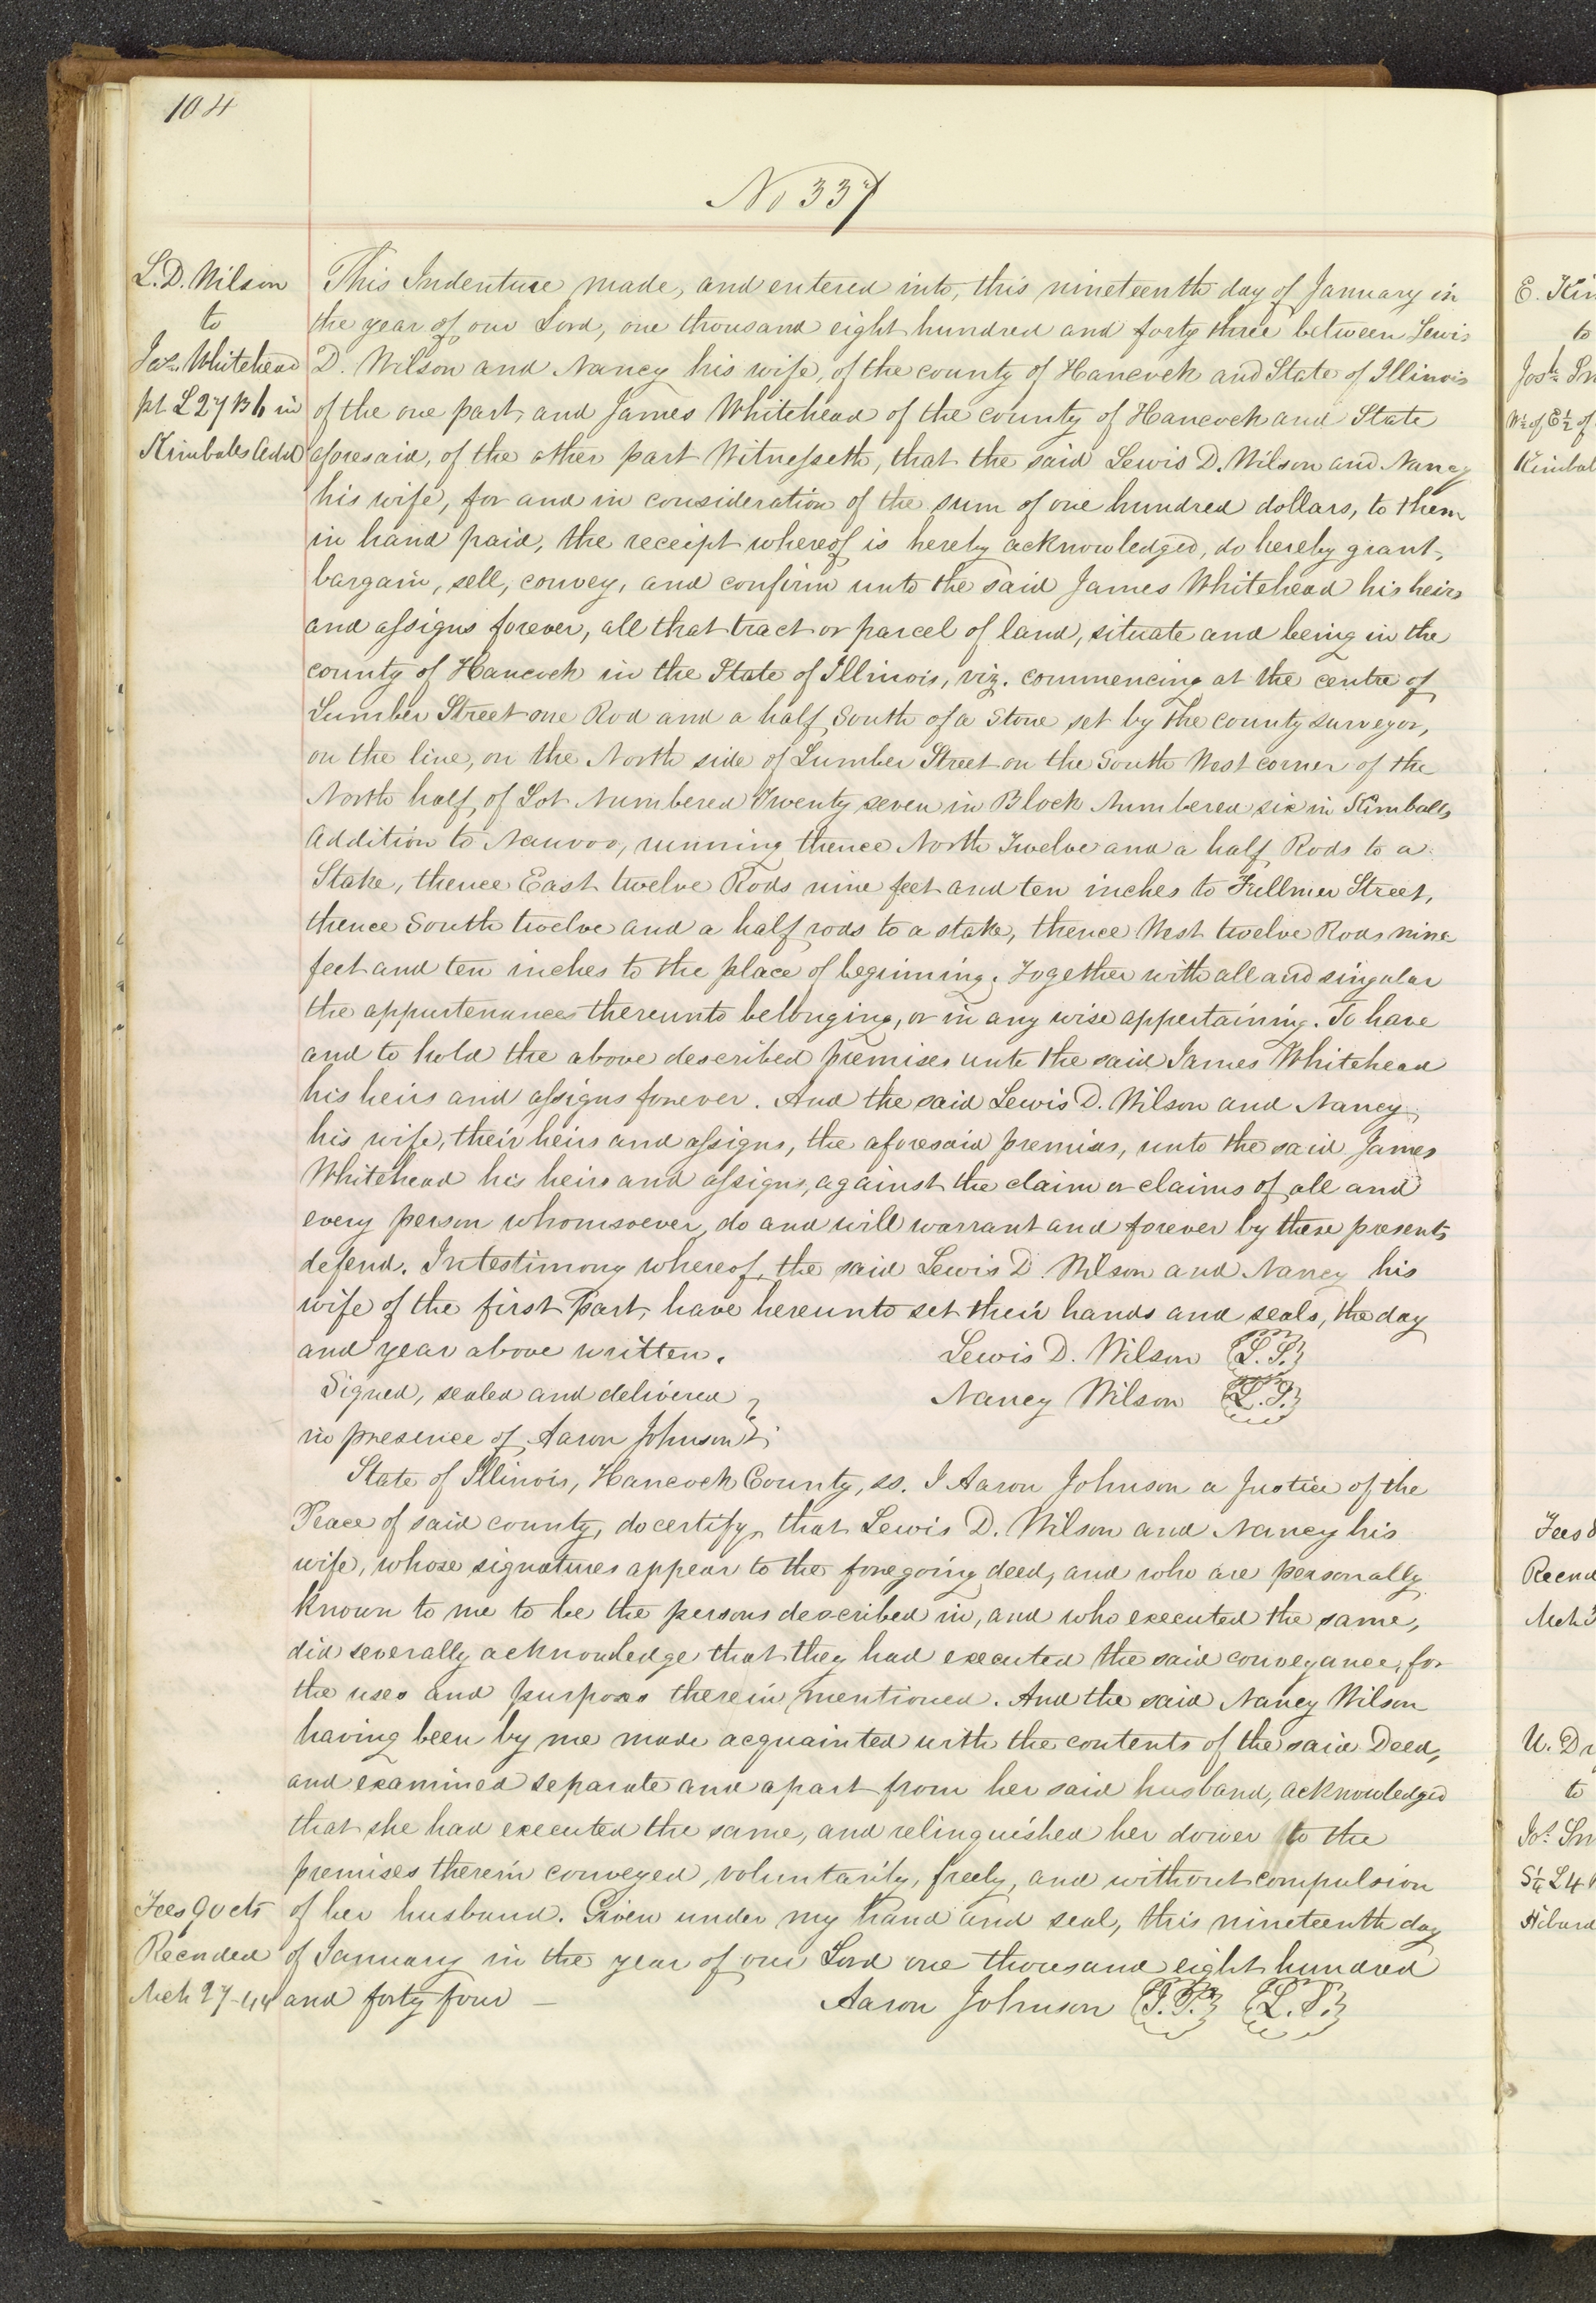 104
No 337
L. D. Wilson
to
Jas. Whitehead
pt L 27 B 6 in
Kimbales Add
This Indenture made, and entered into, this nineteenth day of January in
the year of our Lord, one thousand eight hundred and forty three between Lewis
D. Wilson and Nancy his wife, of the county of Hancock and State of Illinois
of the one part, and James Whitehead of the county of Hancock and State
aforesaid, of the other part Witnesseth, that the said Lewis D. Wilson and Nancy
his wife, for and in consideration of the sum of one hundred dollars, to them
in hand paid, the receipt whereof is hereby acknowledged, do hereby grant,
bargain, sell, convey, and confirm unto the said James Whitehead his heirs
and assigns forever, all that tract or parcel of land, situate and being in the
county of Hancock in the State of Illinois, viz. commencing at the centre of
Lumber Street one Rod and a half South of a Stone set by the county surveyor,
on the line, on the North side of Lumber Street on the South West corner of the
North half, of Lot Numbered Twenty seven in Block Numbered six in Kimballs
Addition to Nauvoo, running thence North Twelve and a half Rods to a
Stake, thence East twelve Rods nine feet and ten inches to Fullmer Street,
thence South twelve and a half rods to a stake, thence West twelve Rods nine
feet and ten inches to the place of beginning. Together with all and singular
the appurtenances thereunto belonging, or in any wise appertaining. To have
and to hold the above described premises unto the said James Whitehead
his heirs and assigns forever. And the said Lewis D. Wilson and Nancy
his wife, their heirs and assigns, the aforesaid premises, unto the said James
Whitehead his heirs and assigns, against the claim or claims of all and
every person whomsoever, do and will warrant and forever by these presents
defend. In testimony whereof, the said Lewis D. Wilson and Nancy his
wife of the first Part, have hereunto set their hands and seals, the day
and year above written. Lewis D. Wilson L.S.
Signed, sealed and delivered Nancy Wilson L.S.
in presence of Aaron Johnson
State of Illinois, Hancock County, ss. I Aaron Johnson a Justice of the
Peace of said county, do certify, that Lewis D. Wilson and Nancy his
wife, whose signatures appear to the foregoing deed, and who are personally
known to me to be the persons described in, and who executed the same,
did severally acknowledge that they had executed the said conveyance, for
the uses and purposes therein mentioned. And the said Nancy Wilson
having been by me made acquainted with the contents of the said Deed,
and examined separate and apart from her said husband, acknowledged
that she had executed the same, and relinquished her dower to the
premises therein conveyed, voluntarily, freely, and without compulsion
of her husband. Given under my hand and seal, this nineteenth day
of January in the year of our Lord one thousand eight hundred
and forty four — Aaron Johnson J.P. L.S.
Fees 90 cts
Recorded
Mch 27-44
E. Kim
to
Josh Sm
W½ of E½ of
Kimbal
Fees
Record
Mch
U. Dr
to
Jos. Sm
S¼ L4
Hibard